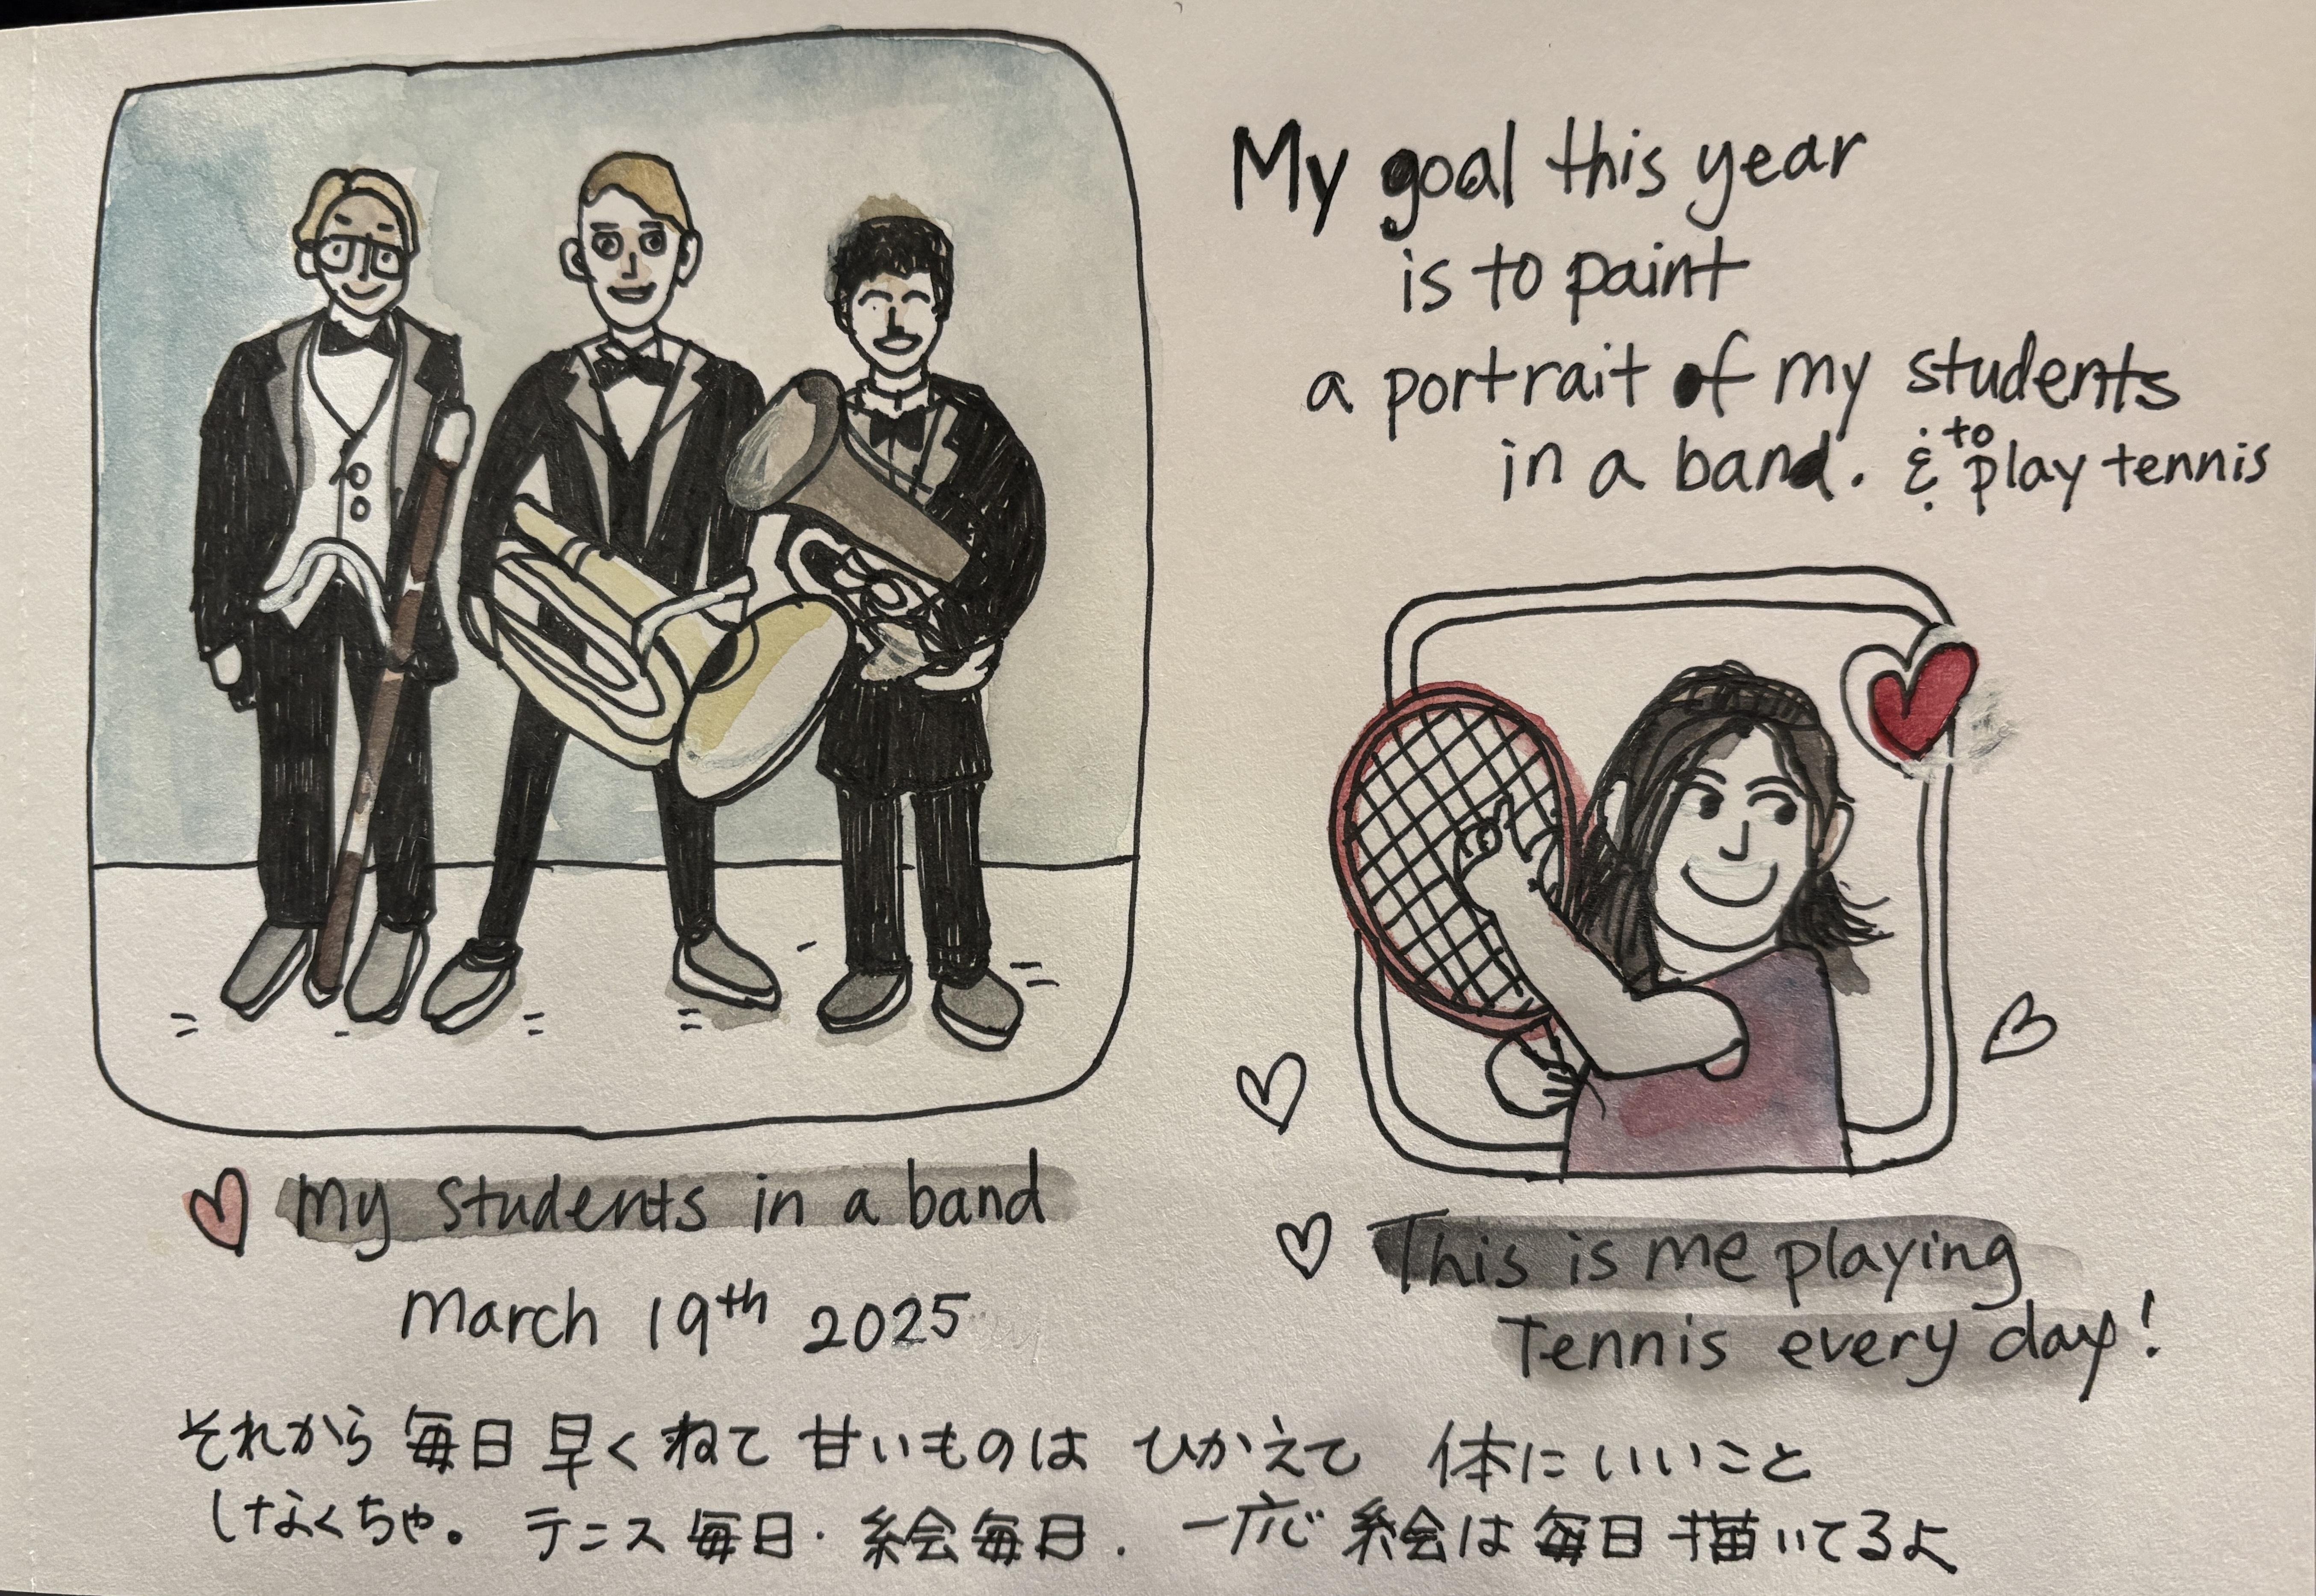 My goal this year
is to paint
a portrait of my students
in a band. & to play tennis
my students in a band
March 19th 2025
This is me playing
Tennis every day!
それから 毎日 早くねて 甘いものは ひかえて 体にいいこと
しなくちゃ。 テニス毎日・絵会毎日. 一応 絵会は毎日描いてるよ